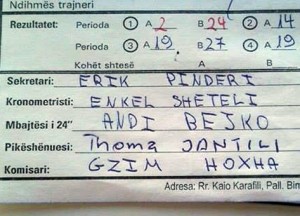 Ndihmës trajneri
Rezultatet: Perioda ① A 2 B 24 ② A 14
Perioda ③ A 19 B 27 ④ A 19
Kohët shtesë A B
Sekretari: ERIK PINDERI
Kronometristi: ENKEL SHETELI
Mbajtësi i 24" ANDI BEJKO
Pikëshënuesi: Thoma JANTILI
Komisari: GZIM HOXHA
Adresa: Rr. Kaio Karafili, Pall. Bin